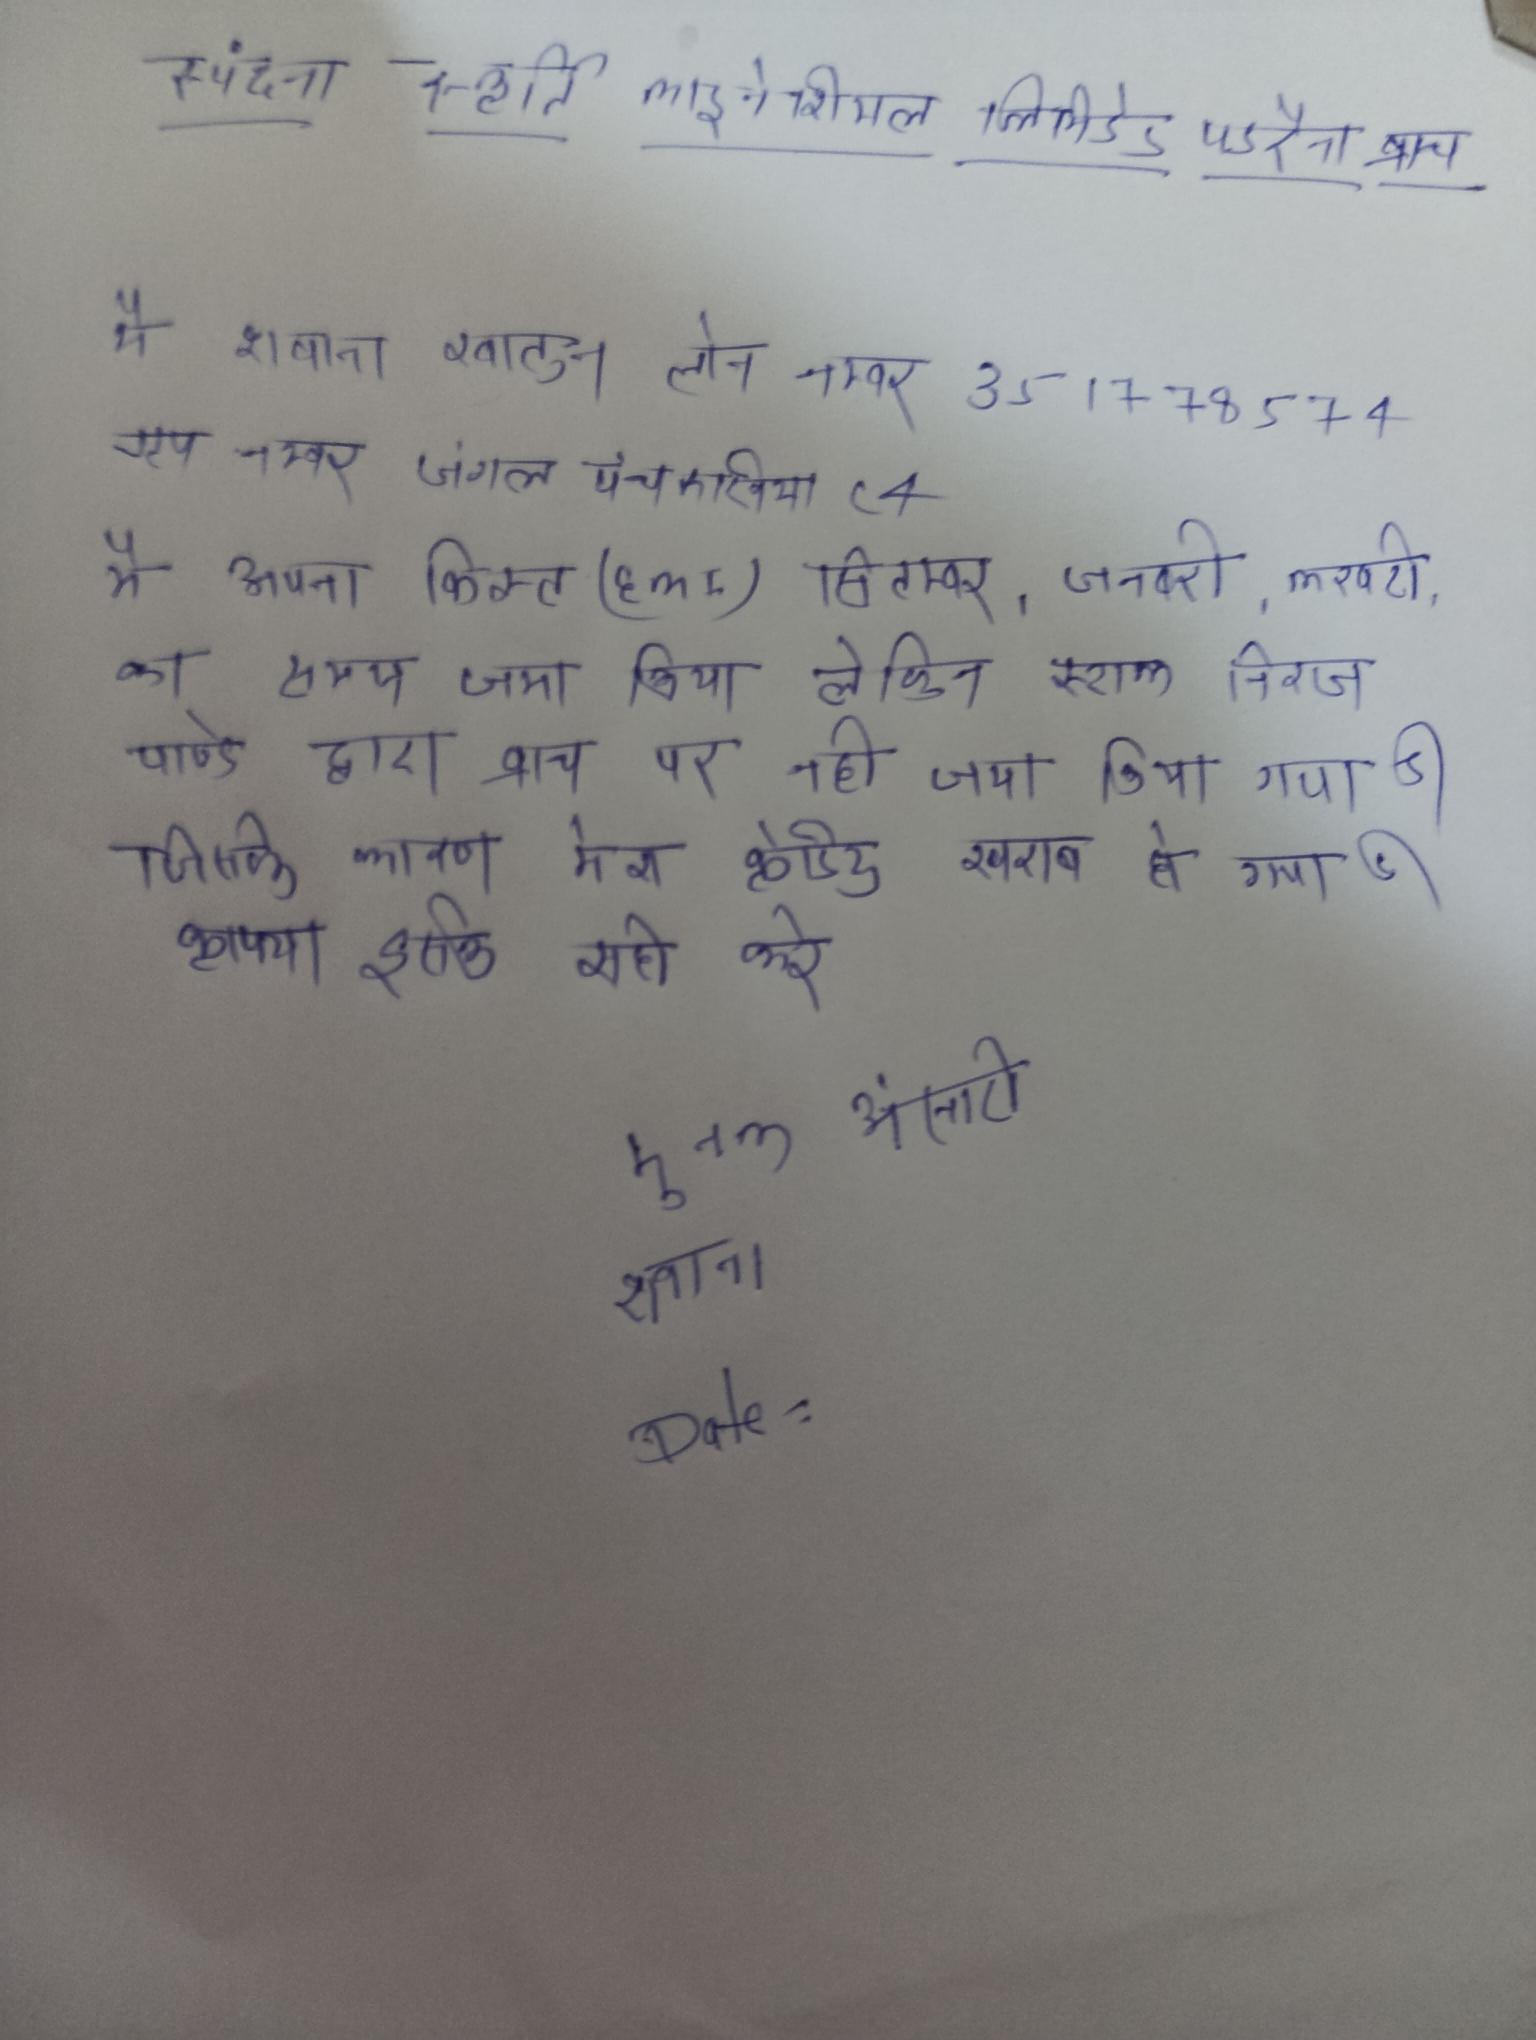 स्पंदना स्फूर्ति फाइनेंशियल लिमीटेड पडरौना ब्रांच
मै शबाना खातुन लोन नम्बर 351778574
ग्रुप नम्बर जंगल पंचरुखिया C4
मै अपना किस्त (EMI) सितम्बर, जनवरी, फरवरी,
का समय जमा किया लेकिन स्टाफ निरज
पाण्डे द्वारा ब्रांच पर नही जमा किया गया है।
जिसके कारण मेरा क्रेडिट खराब हो गया है।
कृपया इसके सही करे
अंसारी
शबाना
Date =